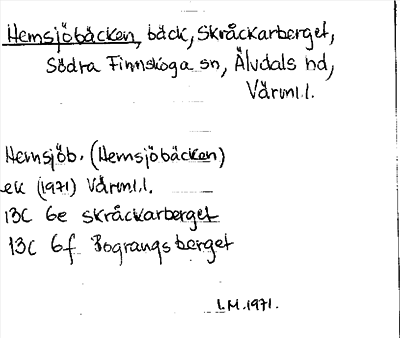 Hemsjöbäcken, bäck, Skråckarberget,
Södra Finnskoga sn, Älvdals hd,
Värml.l.
Hemsjöb. (Hemsjöbäcken)
ek (1971) Värml.l.
13C 6e Skråckarberget
13C 6f Bograngsberget
L.M. 1971.